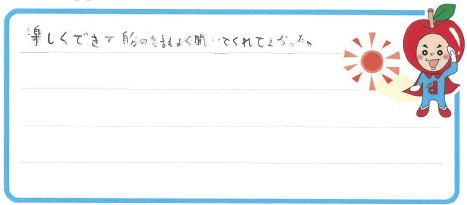 楽しくできて自分の話もよく聞いてくれてよかった。
d